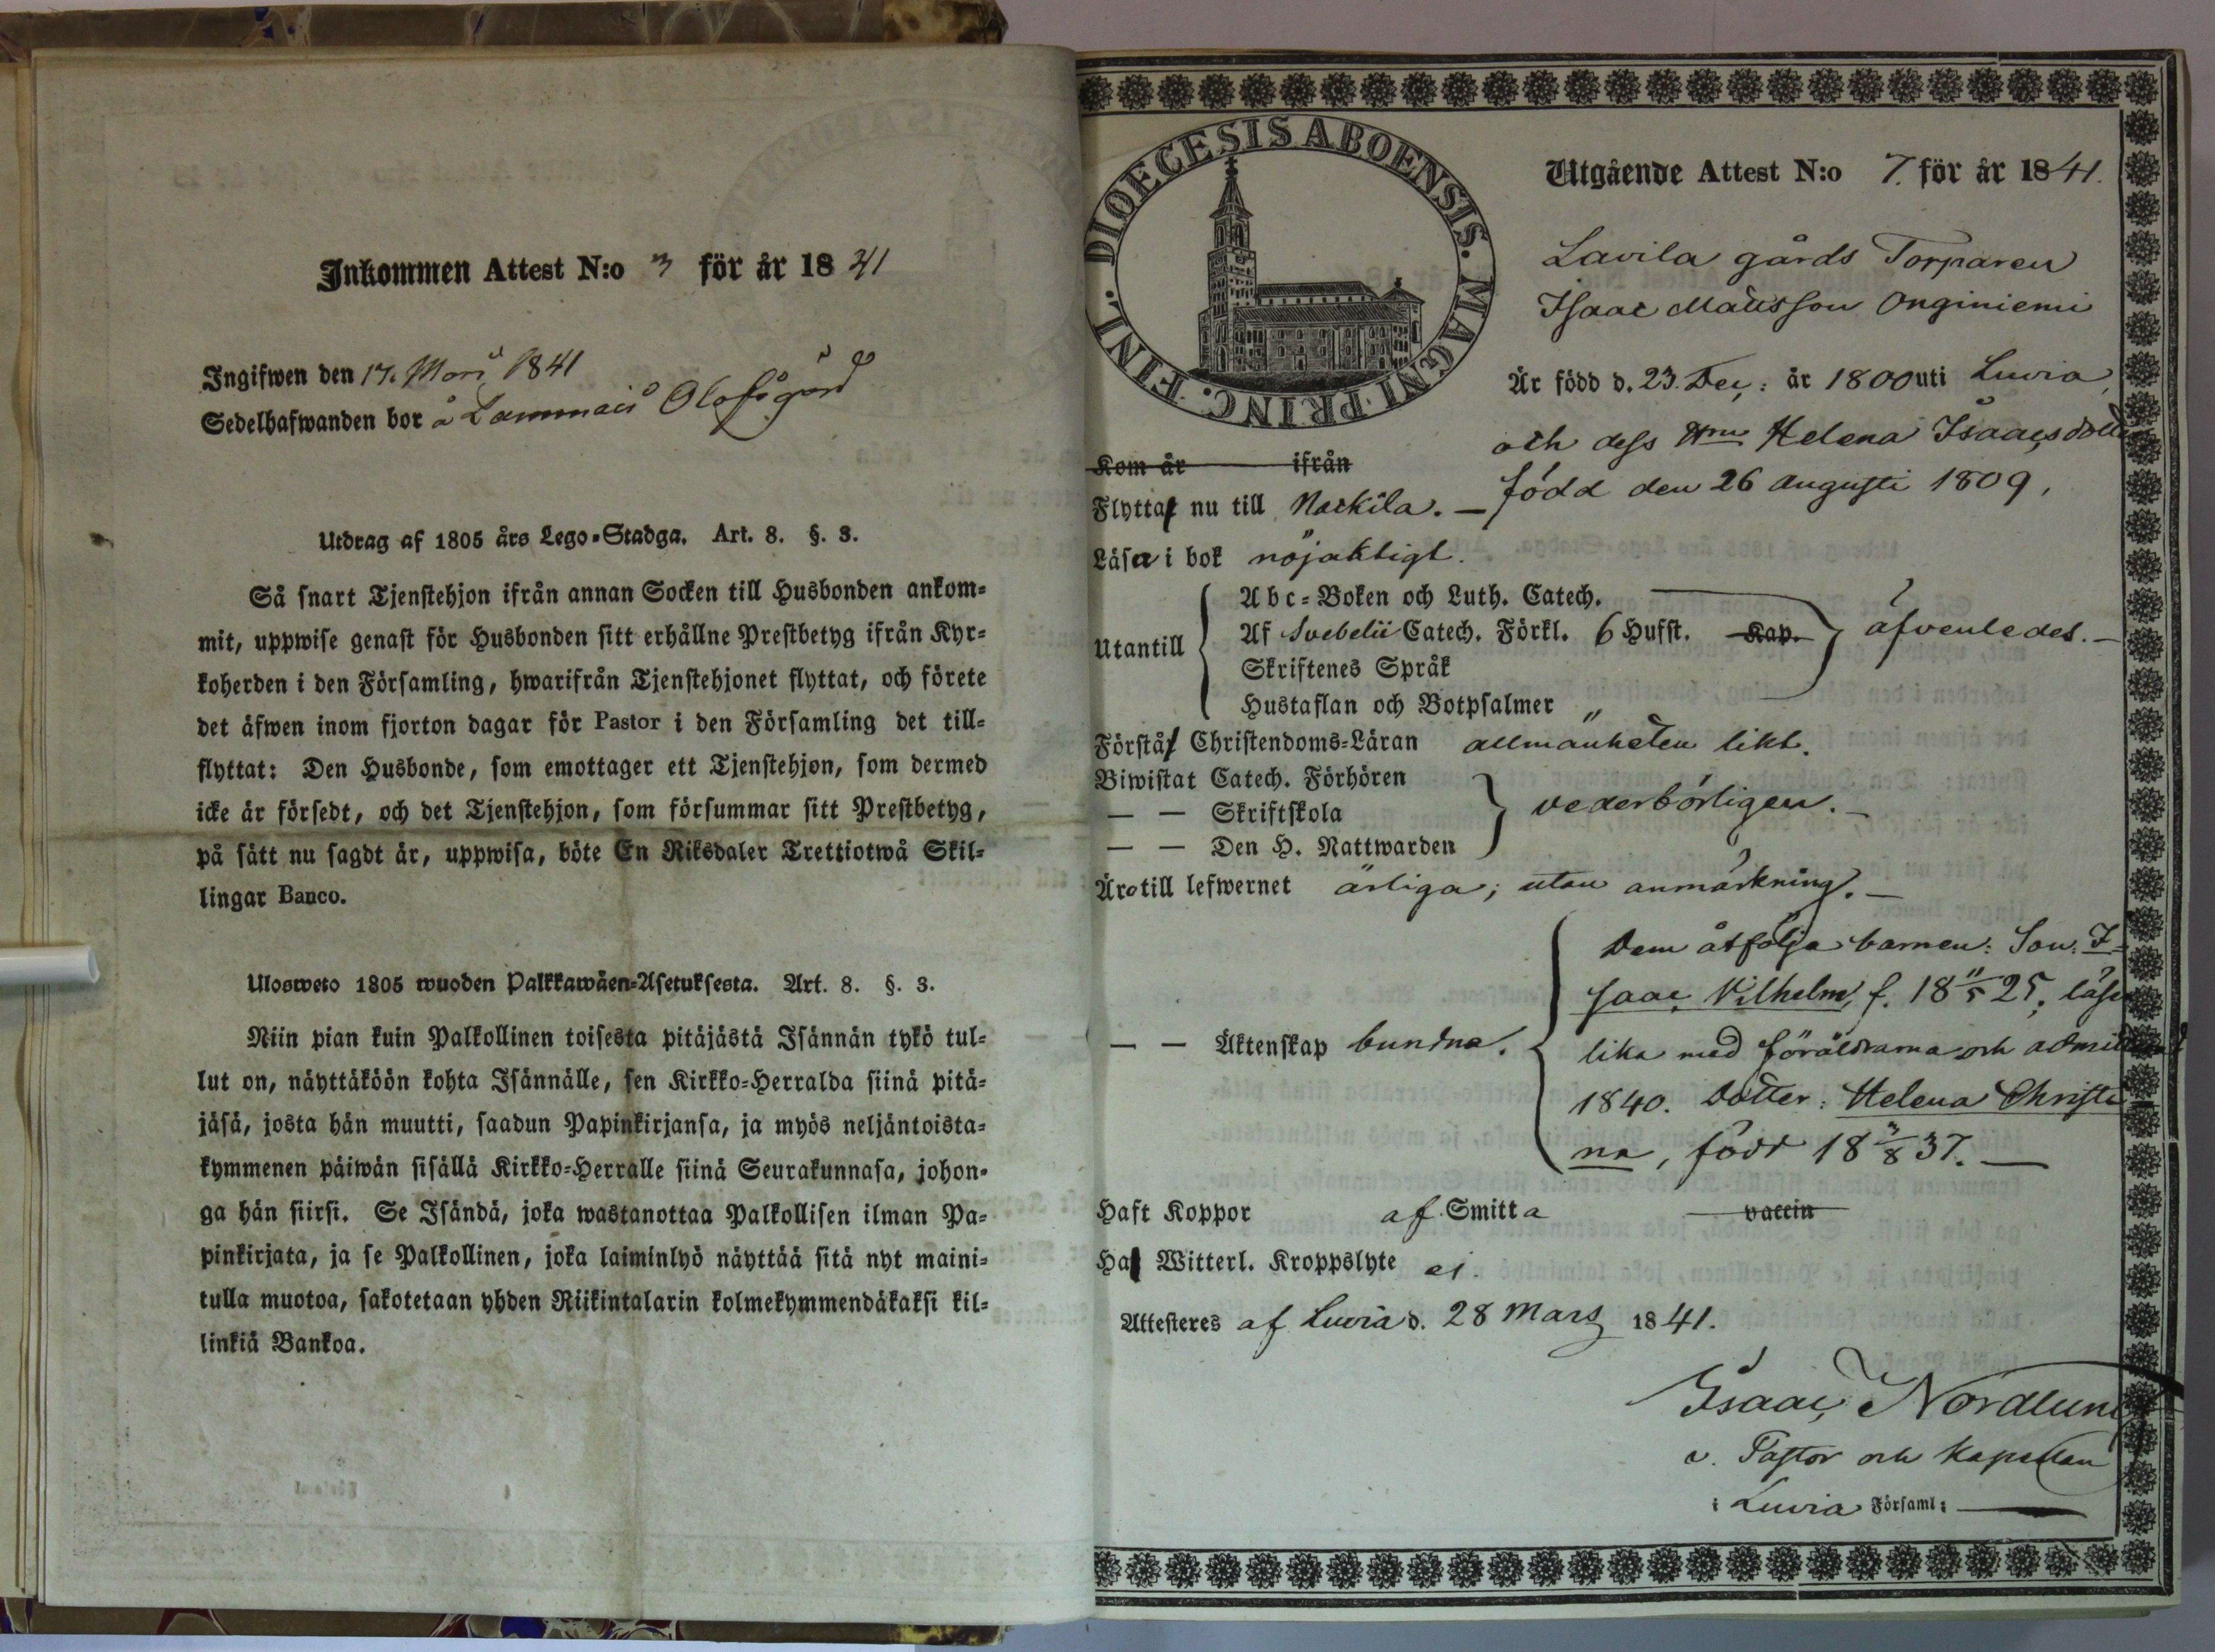 Inkommen Attest N:o 3 för år 1841
Ingifwen den 17. Mars 1841
Sedelhafwanden bor å Lammais Olofsgård
Utdrag af 1805 års Lego-Stadga. Art. 8. §. 3.
Så snart Tjenstehjon ifrån annan Socken till Husbonden ankom-
mit, uppwise genast för Husbonden sitt erhållne Prestbetyg ifrån Kyr-
koherden i den Församling, hwarifrån Tjenstehjonet flyttat, och förete
det äfwen inom fjorton dagar för Pastor i den Församling det till-
flyttat: Den Husbonde, som emottager ett Tjenstehjon, som dermed
icke är försedt, och det Tjenstehjon, som försummar sitt Prestbetyg,
på sätt nu sagdt är, uppwisa, böte En Riksdaler Trettiotwå Skil-
lingar Banco.
Ulosweto 1805 wuoden Palkkawäen-Asetuksesta. Art. 8. §. 3.
Niin pian kuin Palkollinen toisesta pitäjästä Isännän tykö tul-
lut on, näyttäköön kohta Isännälle, sen Kirkko-Herralda siinä pitä-
jäsä, josta hän muutti, saadun Papinkirjansa, ja myös neljäntoista-
kymmenen päiwän sisällä Kirkko-Herralle siinä Seurakunnasa, johon-
ga hän siirsi. Se Isändä, joka wastanottaa Palkollisen ilman Pa-
pinkirjata, ja se Palkollinen, joka laiminlyö näyttää sitä nyt maini-
tulla muotoa, sakotetaan yhden Riikintalarin kolmekymmendäkaksi kil-
linkiä Bankoa.
DIOECESIS ABOENSIS. MAGNI PRINC. FINL.
Utgående Attest N:o 7. för år 1841.
Lavila gårds Torparen
Isaac Matisson Onginiemi
Är född d. 23. Dec: år 1800 uti Luvia,
och dess Hru Helena Isaacsdotter
född den 26 Augusti 1809,
Kom år ifrån
Flytta nu till Nackila. —
Läsa i bok nöjaktigt.
Utantill
Abc-Boken och Luth. Catech.
Af Svebelii Catech. Förkl. 6 Hufst. Kap. äfvenledes. —
Skriftenes Språk
Hustaflan och Botpsalmer „
Förstå Christendoms-Läran allmänheten likt.
Biwistat Catech. Förhören
— — Skriftskola vederbörligen. —
— — Den H. Nattwarden
Äro till lefwernet ärliga; utan anmärkning. —
— — Äktenskap bundna.
Dem åtfölja barnen: Son: I-
saac Vilhelm, f. 18 11/5 25, läser
lika med föräldrarna och admitterad
1840. Dotter: Helena Christi-
na, född 18 3/8 37. —
Haft Koppor af Smitta vaccin
Ha Witterl. Kroppslyte ej.
Attesteres af Luvia d. 28 Mars 1841.
Isaac Nordlund
v. Pastor och Kapellan
i Luvia Församl: —